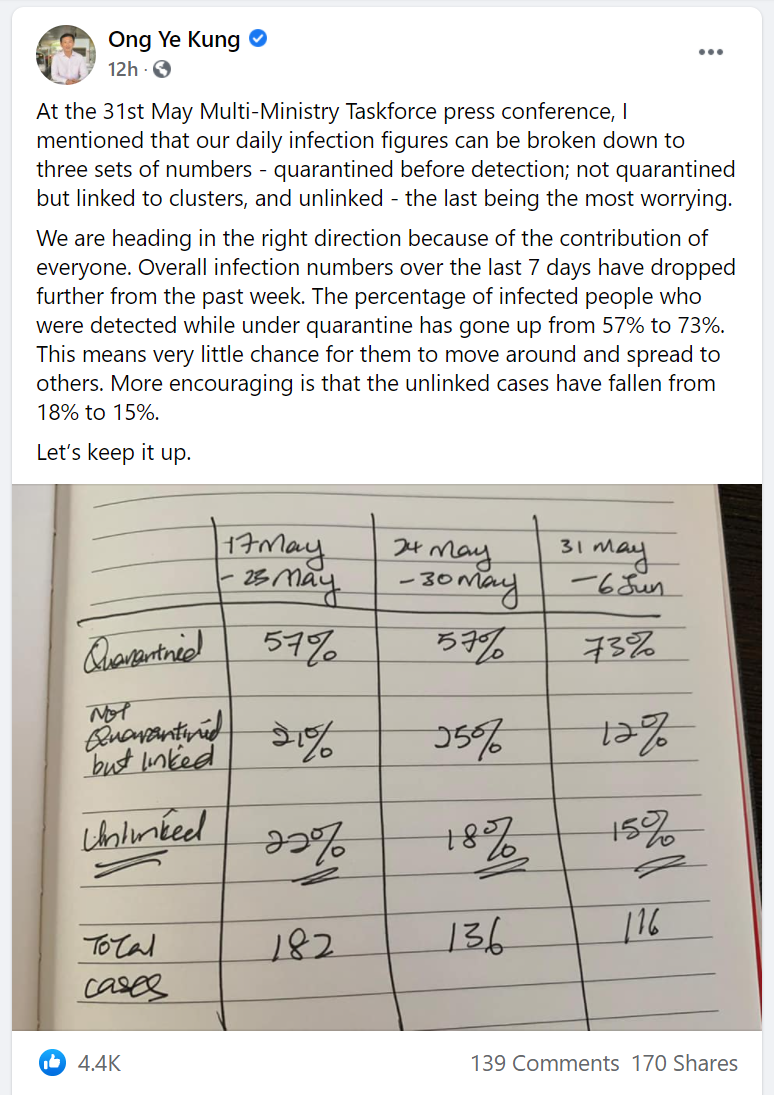 Ong Ye Kung
12h ·
At the 31st May Multi-Ministry Taskforce press conference, I
mentioned that our daily infection figures can be broken down to
three sets of numbers - quarantined before detection; not quarantined
but linked to clusters, and unlinked - the last being the most worrying.
We are heading in the right direction because of the contribution of
everyone. Overall infection numbers over the last 7 days have dropped
further from the past week. The percentage of infected people who
were detected while under quarantine has gone up from 57% to 73%.
This means very little chance for them to move around and spread to
others. More encouraging is that the unlinked cases have fallen from
18% to 15%.
Let’s keep it up.
17 May 24 May 31 May
- 23 May - 30 May - 6 Jun
Quarantined 57% 57% 73%
Not
Quarantined 21% 25% 12%
but linked
Unlinked 22% 18% 15%
Total 182 136 116
cases
4.4K 139 Comments 170 Shares